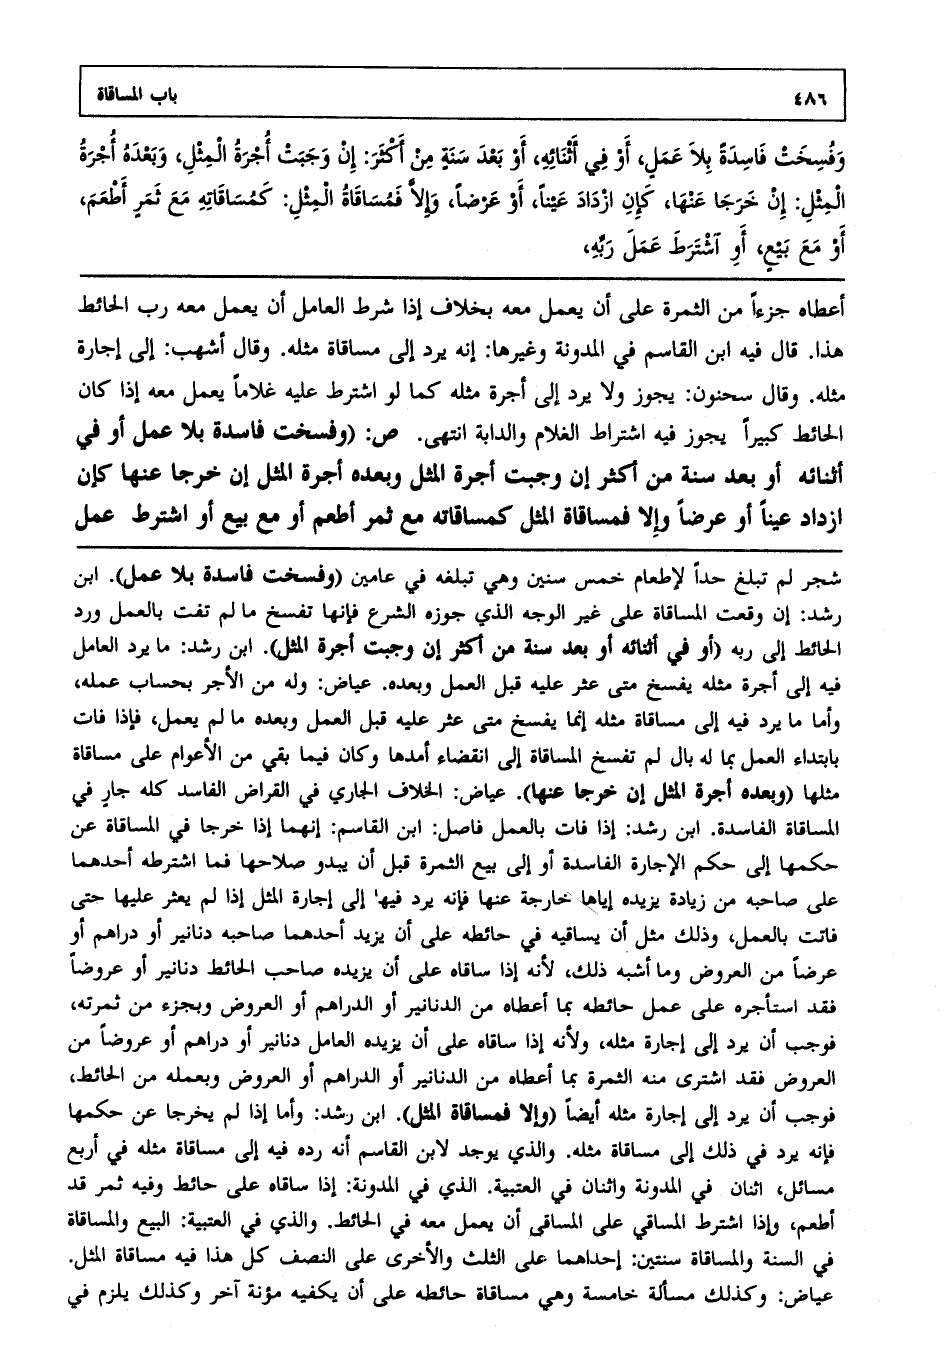 ٤٨٦ باب المساقاة
وَفُسِخَتْ فَاسِدَةً بِلاَ عَمَلٍ، أَوْ فِي أَثْنَائِهِ، أَوْ بَعْدَ سَنَةٍ مِنْ أَكْثَرَ: إِنْ وَجَبَتْ أُجْرَةُ الْمِثْلِ، وَبَعْدَهُ أُجْرَةُ
الْمِثْلِ: إِنْ خَرَجَا عَنْهَا، كَإِنِ ازْدَادَ عَيْناً، أَوْ عَرْضاً، وَإِلاَّ فَمُسَاقَاةُ الْمِثْلِ: كَمُسَاقَاتِهِ مَعَ ثَمَرٍ أَطْعَمَ،
أَوْ مَعَ بَيْعٍ، أَوِ آشْتَرَطَ عَمَلَ رَبِّهِ،
أعطاه جزءاً من الثمرة على أن يعمل معه بخلاف إذا شرط العامل أن يعمل معه رب الحائط
هذا. قال فيه ابن القاسم في المدونة وغيرها: إنه يرد إلى مساقاة مثله. وقال أشهب: إلى إجارة
مثله. وقال سحنون: يجوز ولا يرد إلى أجرة مثله كما لو اشترط عليه غلاماً يعمل معه إذا كان
الحائط كبيراً يجوز فيه اشتراط الغلام والدابة انتهى. ص: (وفسخت فاسدة بلا عمل أو في
أثنائه أو بعد سنة من أكثر إن وجبت أجرة المثل وبعده أجرة المثل إن خرجا عنها كإن
ازداد عيناً أو عرضاً وإلا فمساقاة المثل كمساقاته مع ثمر أطعم أو مع بيع أو اشترط عمل
شجر لم تبلغ حداً لإطعام خمس سنين وهي تبلغه في عامين (وفسخت فاسدة بلا عمل). ابن
رشد: إن وقعت المساقاة على غير الوجه الذي جوزه الشرع فإنها تفسخ ما لم تفت بالعمل ورد
الحائط إلى ربه (أو في أثنائه أو بعد سنة من أكثر إن وجبت أجرة المثل). ابن رشد: ما يرد العامل
فيه إلى أجرة مثله يفسخ متى عثر عليه قبل العمل وبعده. عياض: وله من الأجر بحساب عمله،
وأما ما يرد فيه إلى مساقاة مثله إنما يفسخ متى عثر عليه قبل العمل وبعده ما لم يعمل، فإذا فات
بابتداء العمل بما له بال لم تفسخ المساقاة إلى انقضاء أمدها وكان فيما بقي من الأعوام على مساقاة
مثلها (وبعده أجرة المثل إن خرجا عنها). عياض: الخلاف الجاري في القراض الفاسد كله جارٍ في
المساقاة الفاسدة. ابن رشد: إذا فات بالعمل فاصل: ابن القاسم: إنهما إذا خرجا في المساقاة عن
حكمها إلى حكم الإجارة الفاسدة أو إلى بيع الثمرة قبل أن يبدو صلاحها فما اشترطه أحدهما
على صاحبه من زيادة يزيده إياها خارجة عنها فإنه يرد فيها إلى إجارة المثل إذا لم يعثر عليها حتى
فاتت بالعمل، وذلك مثل أن يساقيه في حائطه على أن يزيد أحدهما صاحبه دنانير أو دراهم أو
عرضاً من العروض وما أشبه ذلك، لأنه إذا ساقاه على أن يزيده صاحب الحائط دنانير أو عروضاً
فقد استأجره على عمل حائطه بما أعطاه من الدنانير أو الدراهم أو العروض وبجزء من ثمرته،
فوجب أن يرد إلى إجارة مثله، ولأنه إذا ساقاه على أن يزيده العامل دنانير أو دراهم أو عروضاً من
العروض فقد اشترى منه الثمرة بما أعطاه من الدنانير أو الدراهم أو العروض وبعمله من الحائط،
فوجب أن يرد إلى إجارة مثله أيضاً (وإلا فمساقاة المثل). ابن رشد: وأما إذا لم يخرجا عن حكمها
فإنه يرد في ذلك إلى مساقاة مثله. والذي يوجد لابن القاسم أنه رده فيه إلى مساقاة مثله في أربع
مسائل، اثنان في المدونة واثنان في العتبية. الذي في المدونة: إذا ساقاه على حائط وفيه ثمر قد
أطعم، وإذا اشترط المساقي على المساقى أن يعمل معه في الحائط. والذي في العتبية: البيع والمساقاة
في السنة والمساقاة سنتين: إحداهما على الثلث والأخرى على النصف كل هذا فيه مساقاة المثل.
عياض: وكذلك مسألة خامسة وهي مساقاة حائطه على أن يكفيه مؤنة آخر وكذلك يلزم في